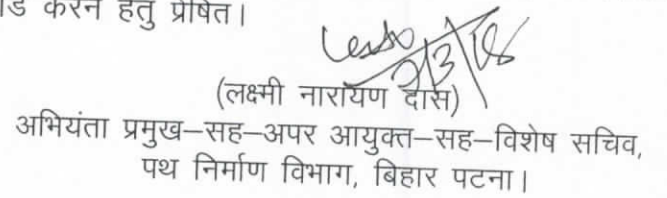 करने हेतु प्रेषित।
2/3/18
(लक्ष्मी नारायण दास)
अभियंता प्रमुख–सह–अपर आयुक्त–सह–विशेष सचिव,
पथ निर्माण विभाग, बिहार पटना।